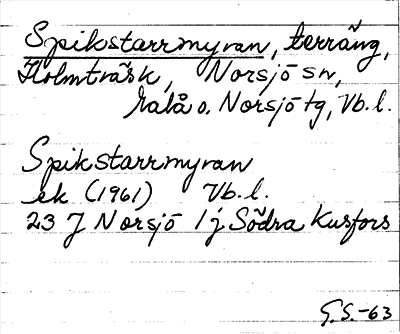 Spikstarrmyran, terräng,
Holmträsk, Norsjö sn,
Malå o. Norsjö tg, Vb.l.
Spikstarrmyran
ek (1961) Vb.l.
23 J Norsjö 1j Södra Kusfors
G.S.-63